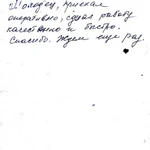 Молодец, приехал
оперативно, сделал работу
качественно и быстро.
Спасибо. Ждем еще раз.